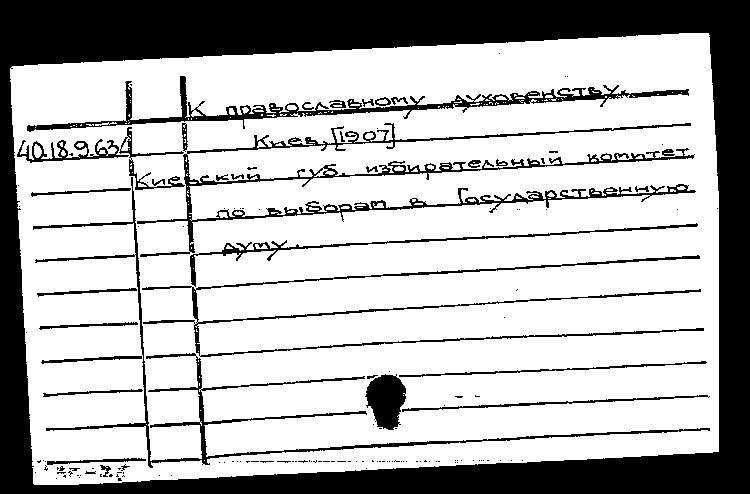 К православному духовенству.
40.18.9.63/
Киев, [1907]
Киевский губ. избирательный комитет
по выборам в Государственную
думу.